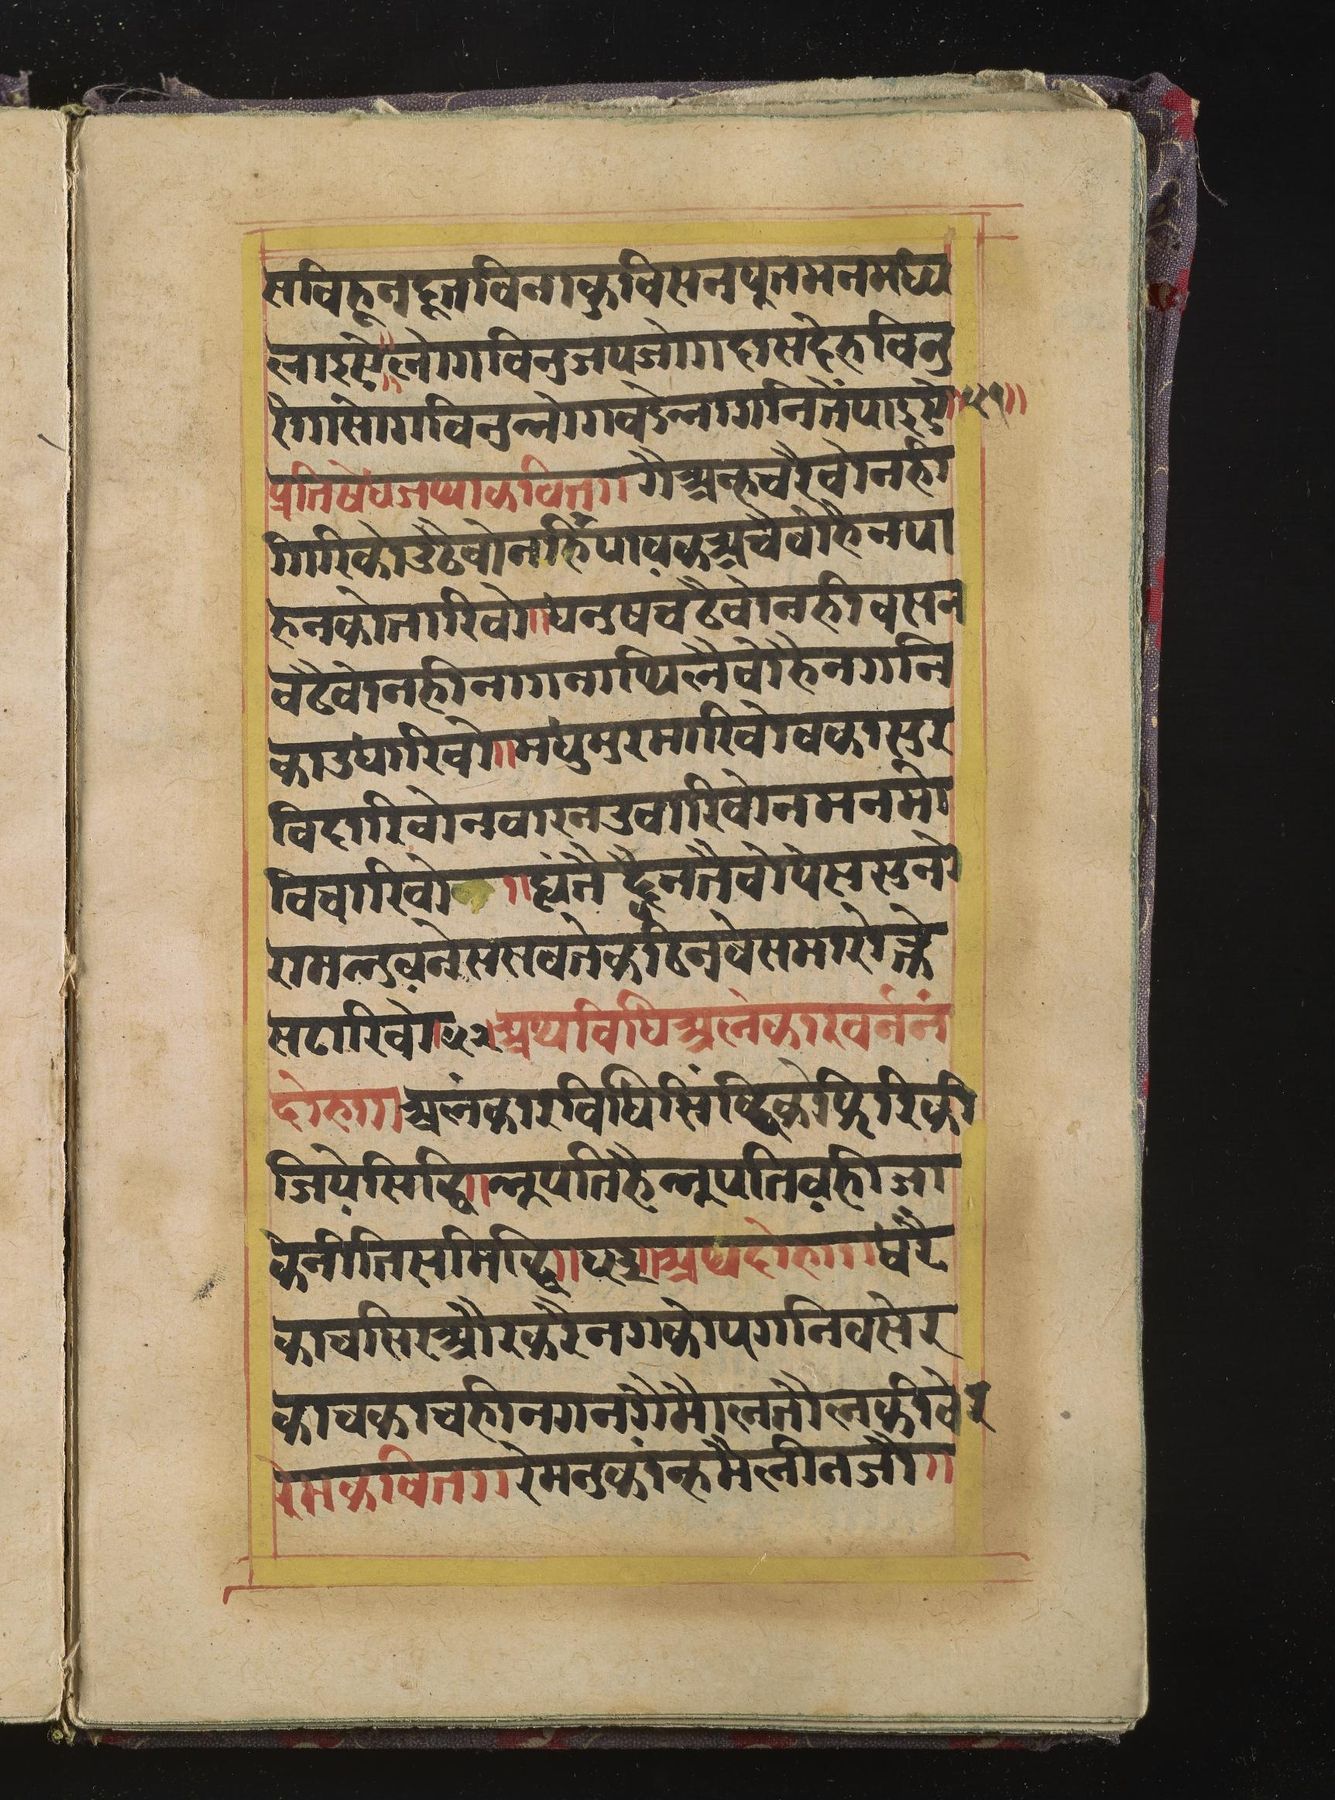 सविहूनदूतविनाकुविसनपूतमनमध्य
लाइये॥लोगविनुजपजोगदाससदेहविनु
रोगसोगविनुन्लोगवडेन्नागनितेंपाइए॥५१॥
प्रतिषेधजथाकवित॥गैअन्हचैरवोनही
गिरिकोउठैवोनहिंपावकअचैवोहैनपा
हनकोतारिवो॥धनुषचढैवोनहीवसन
वढैवोनहीनागनाथिलैवोहैनगनि
काउधारिवो॥मधुमुरमारिवोवकासुर
विदारिवोनवारनउवारिवोनमनमे
विचारिवो॥ह्यंनै दैूनतैवोपेससुनो
रामन्लुवनेससवतेकठिनवेसमारोक्ले
सटारिवो॥५२॥अथविधिअलंकारवर्ननं
दोहा॥अलंकारविधिसिंद्धिकोफिरिकी
जियेसिद्धि॥न्नूपतिहैन्नूपतिवहीजा
केनीतिसमिद्धि॥५३॥अथदोहा॥धरै
काचसिरऔरकरैनगकोपगनिवसेर
काचकाचहीनगनगैमोलतौलकीवेर
रेमकवित॥रेमनुकान्हमैलीनजौ॥